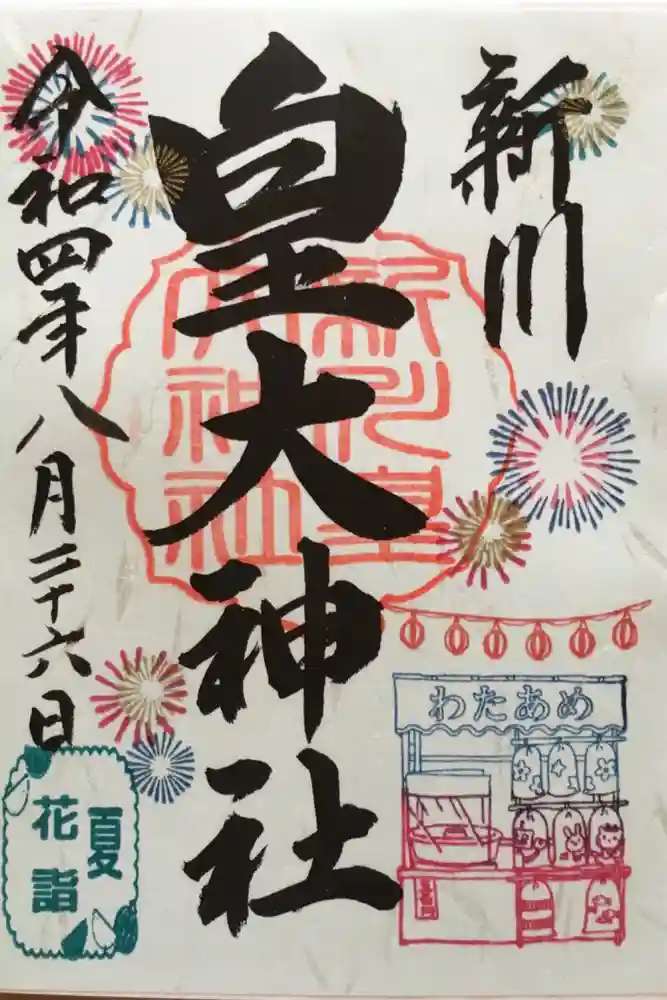 新川
皇大神社
令和四年八月二十六日
新川皇
大神社
わたあめ
夏
花詣